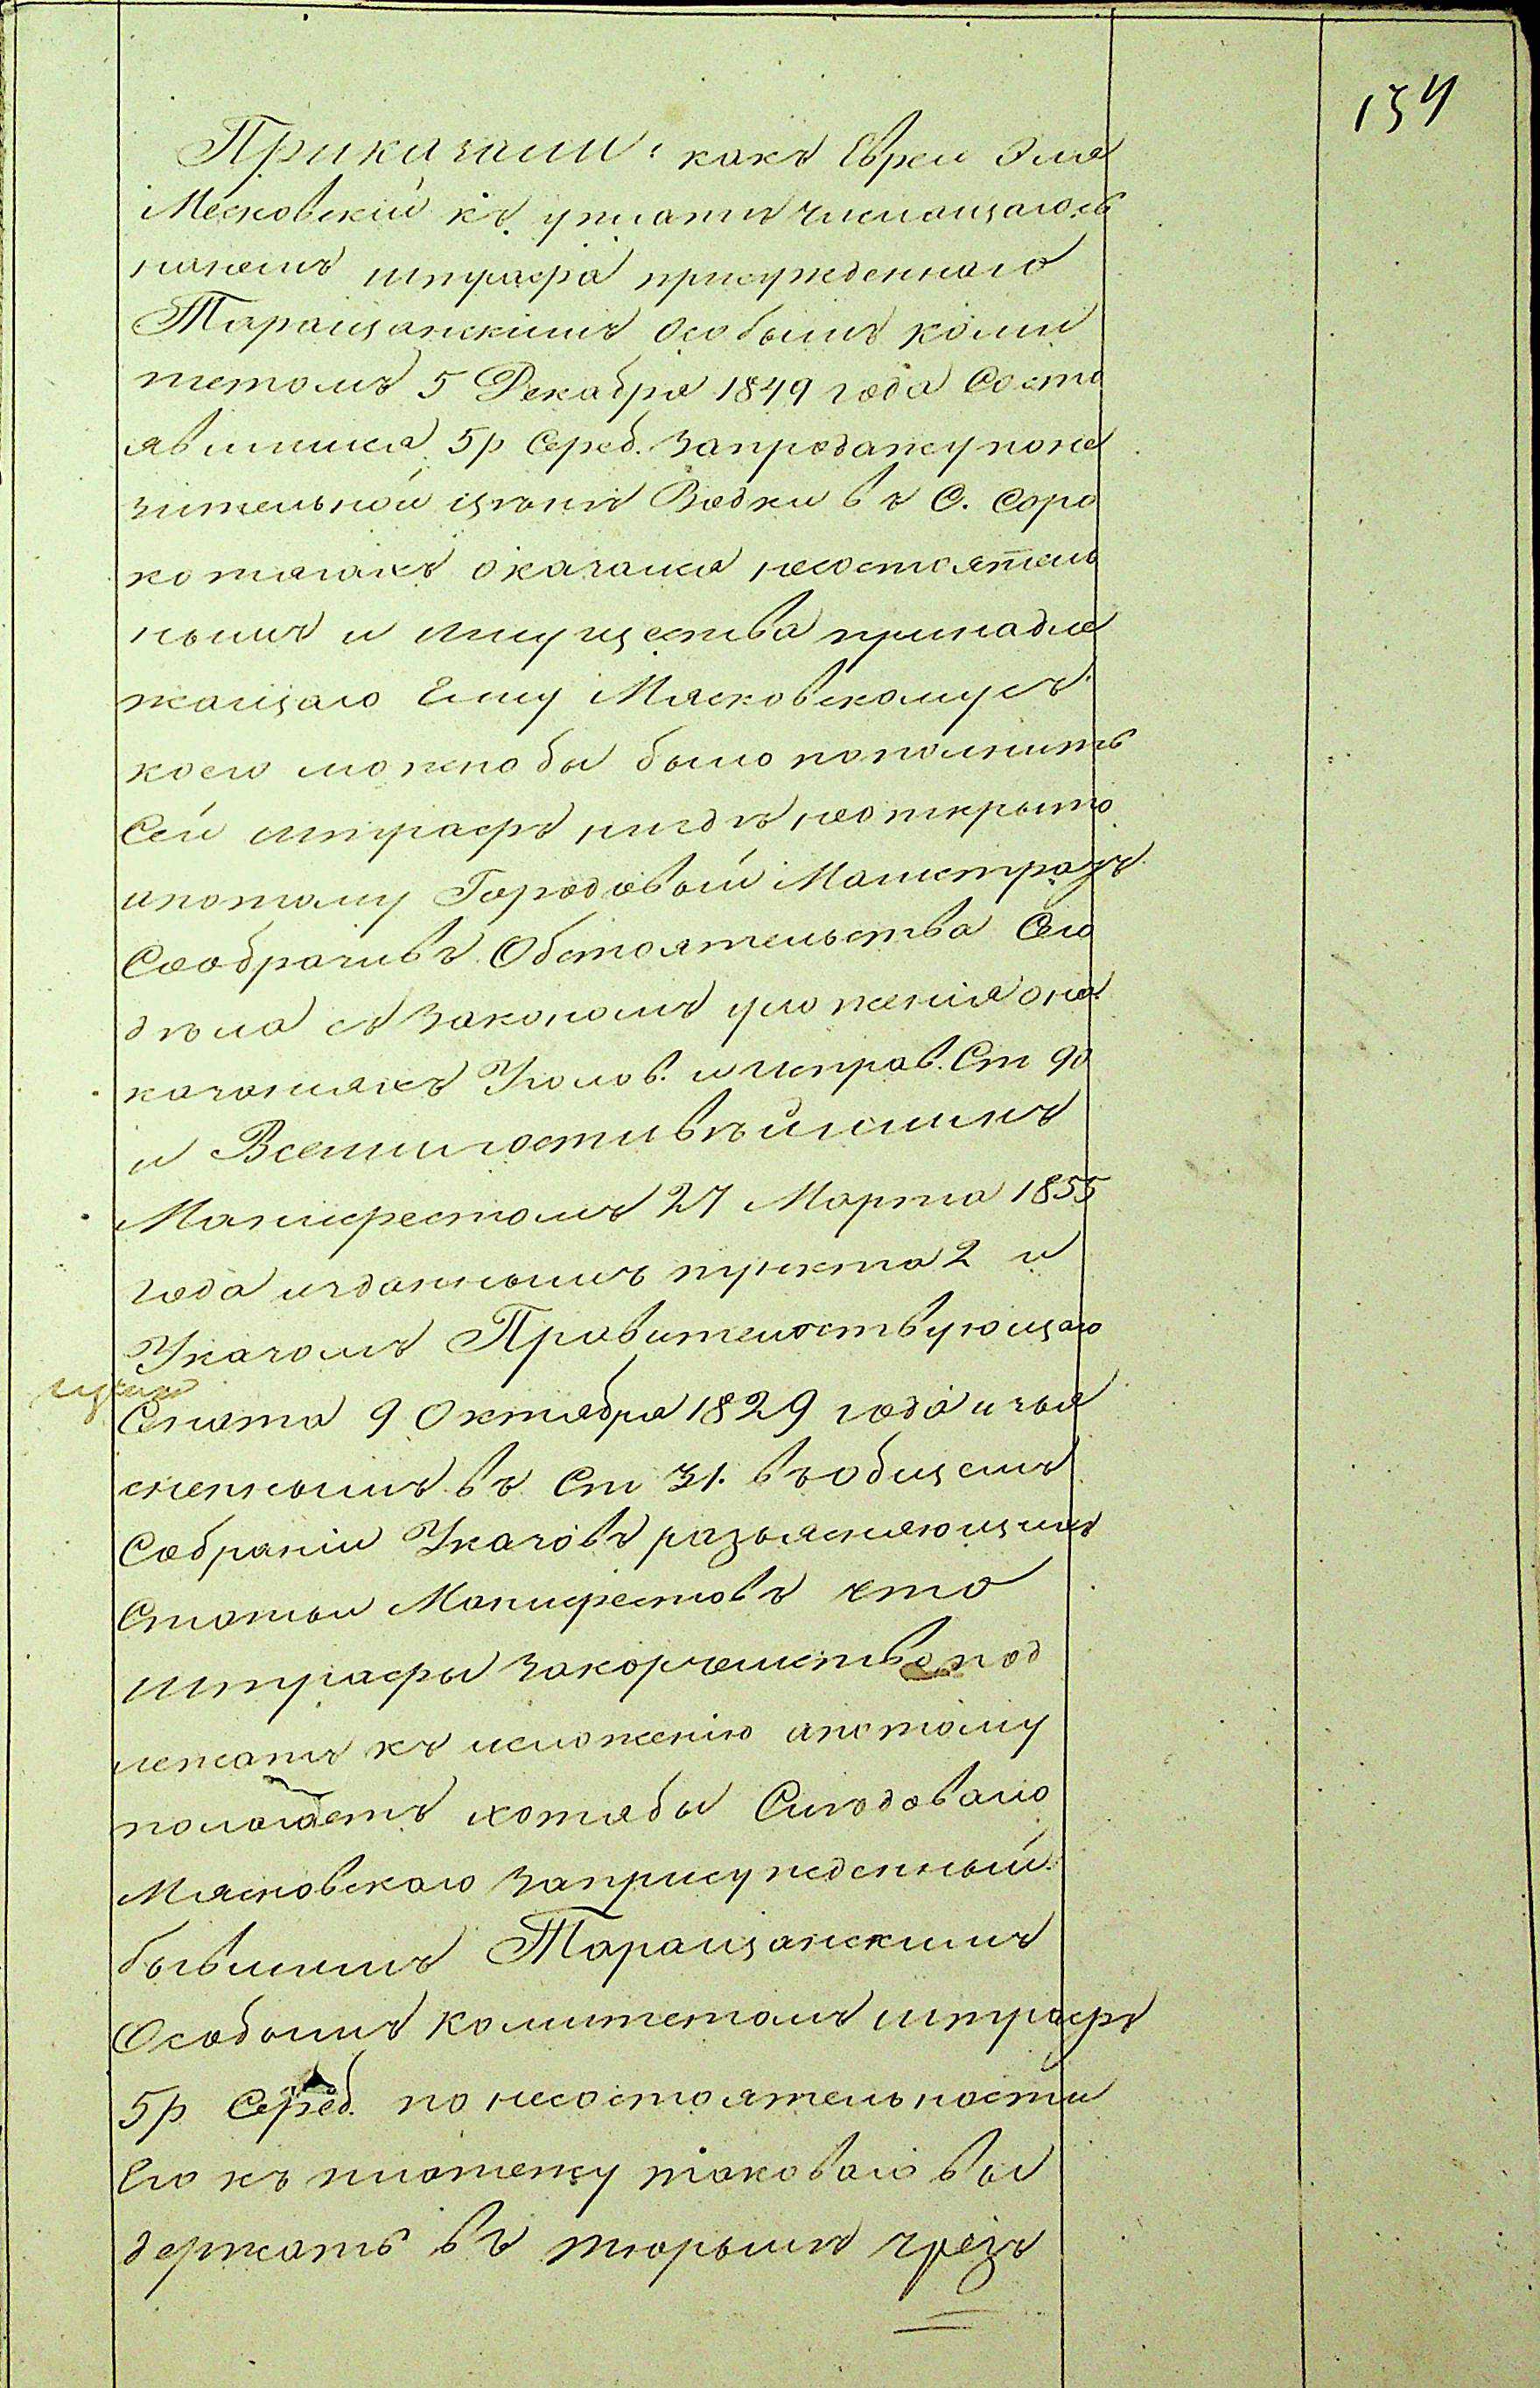 134
Приказали: какъ Еврей Эля
Месковскій къ уплатѣ числящагось
нанемъ штрафа присужденнаго
Таращанскимъ Особымъ коми
тетомъ 5 Декабря 1849 года Состо
явшимся 5р Сереб. Запродажу пони
зительной цѣнѣ Водки въ С. Соро
котягахъ оказался несостоятель
нымъ и имущества принадле
жащаго Ему Мясковскому съ
коего можно бы было пополнить
Сей штрафъ нигдѣ неоткрыто
ипотому Городовый Магистратъ
Сообразивъ Обстоятельства Сего
дѣла съ Закономъ уложенія она
казаніяхъ Уголов. и Исправ. Ст 90
и Всемилостивѣйшимъ
Манифестомъ 27 Марта 1855
года изданнымъ пункта 2 и
Указомъ Правительствующаго
Сената 9 Октября 1829 года изъя
сненнымъ въ Ст 31. въ общемъ
Собраніи Указовъ разъясняющимъ
Статьи Манифестовъ что
штрафы Закорчемство под
лежатъ къ исложенію ипотому
полагаетъ хотябы Слѣдовало
Мясковскаго Заприсужденный
бывшимъ Таращанскимъ
Особымъ комитетомъ штрафъ
5р Сереб. по несостоятельности
Его къ платежу таковаго вы
держать въ тюрьмѣ чрезъ